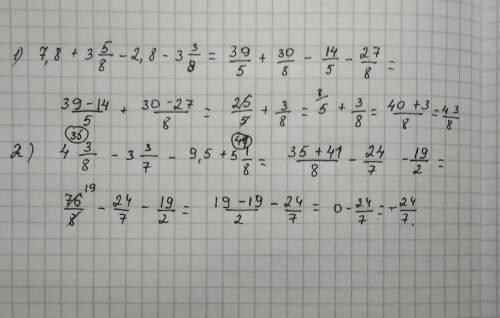 1) 7,8 + 3 5/8 - 2,8 - 3 3/8 = 39/5 + 30/8 - 14/5 - 27/8 =
39-14/5 + 30-27/8 = 25/5 + 3/8 = 5 + 3/8 = 40+3/8 = 43/8
2) 4 3/8 - 3 3/7 - 9,5 + 5 1/8 = 35+41/8 - 24/7 - 19/2 =
76/8 19 - 24/7 - 19/2 = 19-19/2 - 24/7 = 0 - 24/7 = -24/7.